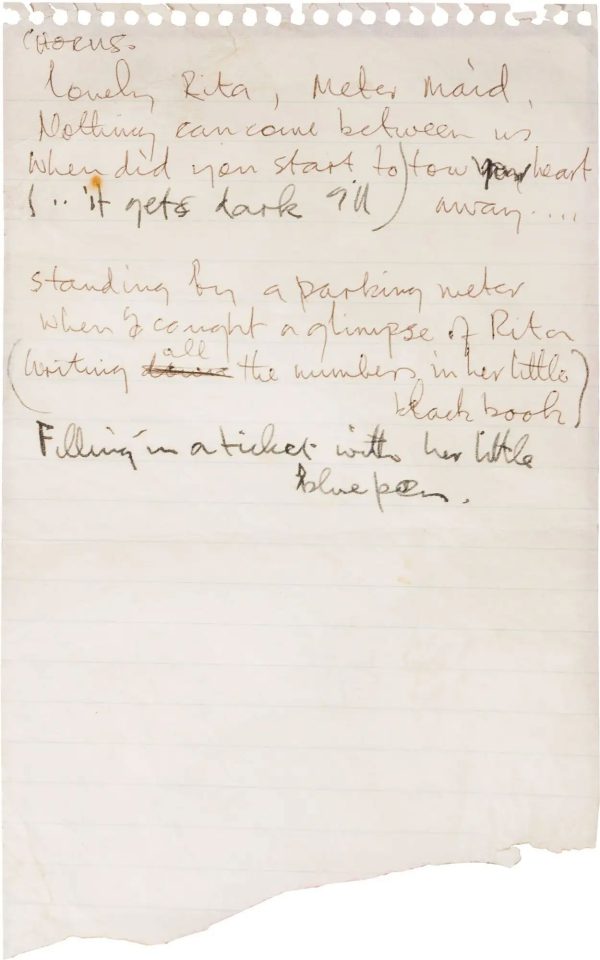 CHORUS.
lovely Rita, Meter Maid,
Nothing can come between us
When did you start to) tow your heart
(.. it gets dark I'll) away....
standing by a parking meter
when I caught a glimpse of Rita
all
(writing down the numbers in her little
black book)
Filling in a ticket with her little
blue pen.